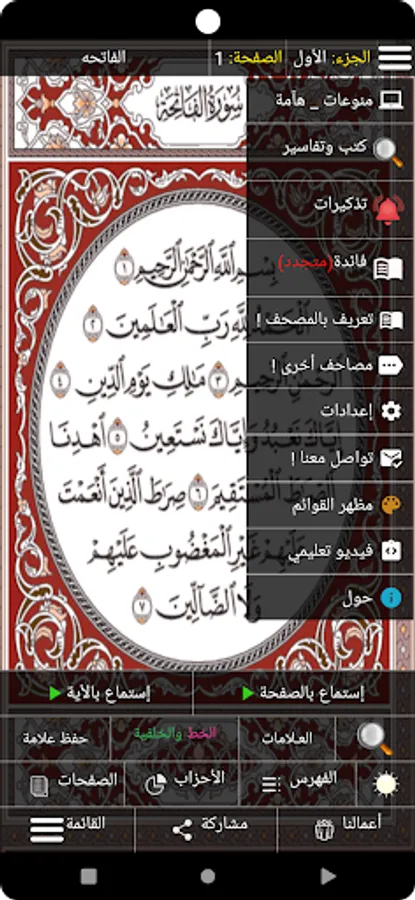 الجزء: الأول الصفحة: 1 الفاتحه
سُورَةُ الفَاتِحَة
منوعات _ هآمة
كتب وتفاسير
تذكيرات
فائدة(متجدد)
تعريف بالمصحف !
مصاحف أخرى !
إعدادات
تواصل معنا !
مظهر القوائم
فيديو تعليمي
حول
بِسْمِ اللَّهِ الرَّحْمَٰنِ الرَّحِيمِ ١
لِلَّهِ رَبِّ الْعَالَمِينَ ٢
الرَّحْمَٰنِ الرَّحِيمِ ٣ مَالِكِ يَوْمِ الدِّينِ ٤
إِيَّاكَ نَعْبُدُ وَإِيَّاكَ نَسْتَعِينُ ٥ اهْدِنَا
الصِّرَاطَ الْمُسْتَقِيمَ ٦ صِرَاطَ الَّذِينَ أَنْعَمْتَ
عَلَيْهِمْ غَيْرِ الْمَغْضُوبِ عَلَيْهِمْ
وَلَا الضَّالِّينَ ٧
إستماع بالصفحة إستماع بالآية
العلامات الخط والخلفية حفظ علامة
الفهرس الأحزاب الصفحات
أعمالنا مشاركة القائمة